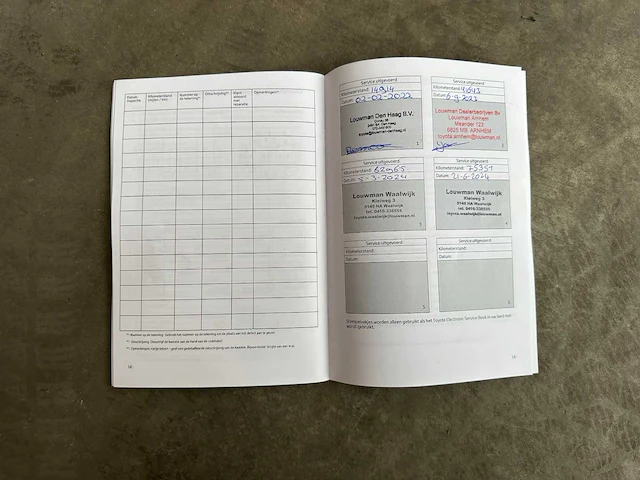 Datum
inspectie
Kilometerstand
(mijlen / km)
Nummer op
de tekening*¹
Omschrijving*²
Klant
akkoord
met
reparatie
Opmerkingen*³
14
Service uitgevoerd
Kilometerstand: 14914
Datum: 02-02-2022
Louwman Den Haag B.V.
toyota@louwman-denhaag.nl
1
Service uitgevoerd
Kilometerstand:
Datum: 6-9-2023
Louwman Dealerbedrijven BV
Louwman Arnhem
Meander 123
6825 MB ARNHEM
toyota.arnhem@louwman.nl
Service uitgevoerd
Kilometerstand: 62965
Datum: 5-3-2024
Louwman Waalwijk
Kleiweg 3
5145 NA Waalwijk
tel. 0416-336555
toyota.waalwijk@louwman.nl
3
Service uitgevoerd
Kilometerstand: 75351
Datum: 21-6-2024
Louwman Waalwijk
Kleiweg 3
5145 NA Waalwijk
tel. 0416-336555
toyota.waalwijk@louwman.nl
4
Service uitgevoerd
Kilometerstand:
Datum:
5
Service uitgevoerd
Kilometerstand:
Datum:
6
Stempelvakjes worden alleen gebruikt als het Toyota Electronic Service Book in uw land niet
wordt gebruikt.